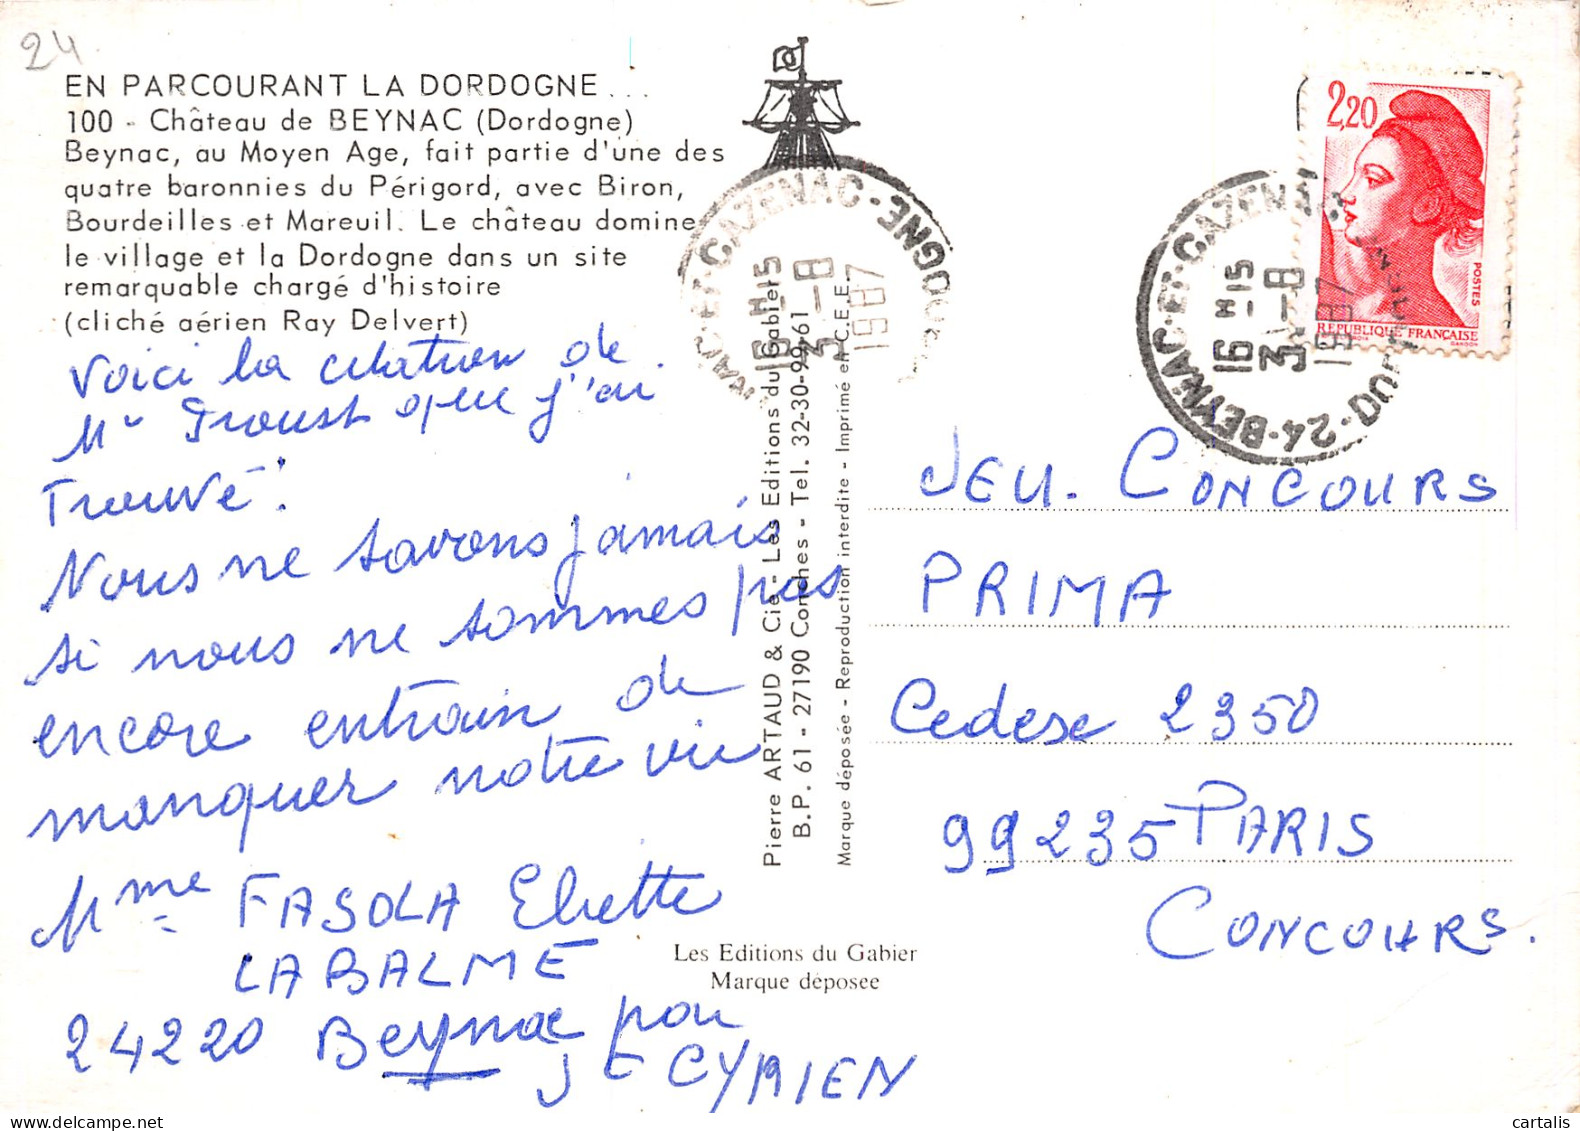 24
EN PARCOURANT LA DORDOGNE...
100 - Château de BEYNAC (Dordogne)
Beynac, au Moyen Age, fait partie d'une des
quatre baronnies du Périgord, avec Biron,
Bourdeilles et Mareuil. Le château domine
le village et la Dordogne dans un site
remarquable chargé d'histoire
(cliché aérien Ray Delvert)
Voici la citation de
Mr Proust que j'ai
Trouvé:
Nous ne savons jamais
si nous ne sommes pas
encore entrain de
manquer notre vie
Mme FASOLA Eliette
LABALME
24220 Beynac par
St CYPRIEN
Pierre ARTAUD & Cie - Les Editions du Gabier
B.P. 61 - 27190 Conches - Tel. 32-30-99-61
Marque déposée - Reproduction interdite - Imprimé en C.E.E.
Les Editions du Gabier
Marque déposée
NAC-ET-CAZENAC - DOGNE
16 H 15
3 - 8
1987
24-BEYNAC-ET-CAZENAC - DORDOGNE
16 H 15
3 - 8
1987
2,20
POSTES
REPUBLIQUE FRANÇAISE
GANDON
JEU. CONCOURS
PRIMA
Cedex 2350
99235 PARIS
CONCOURS.
cartalis.com